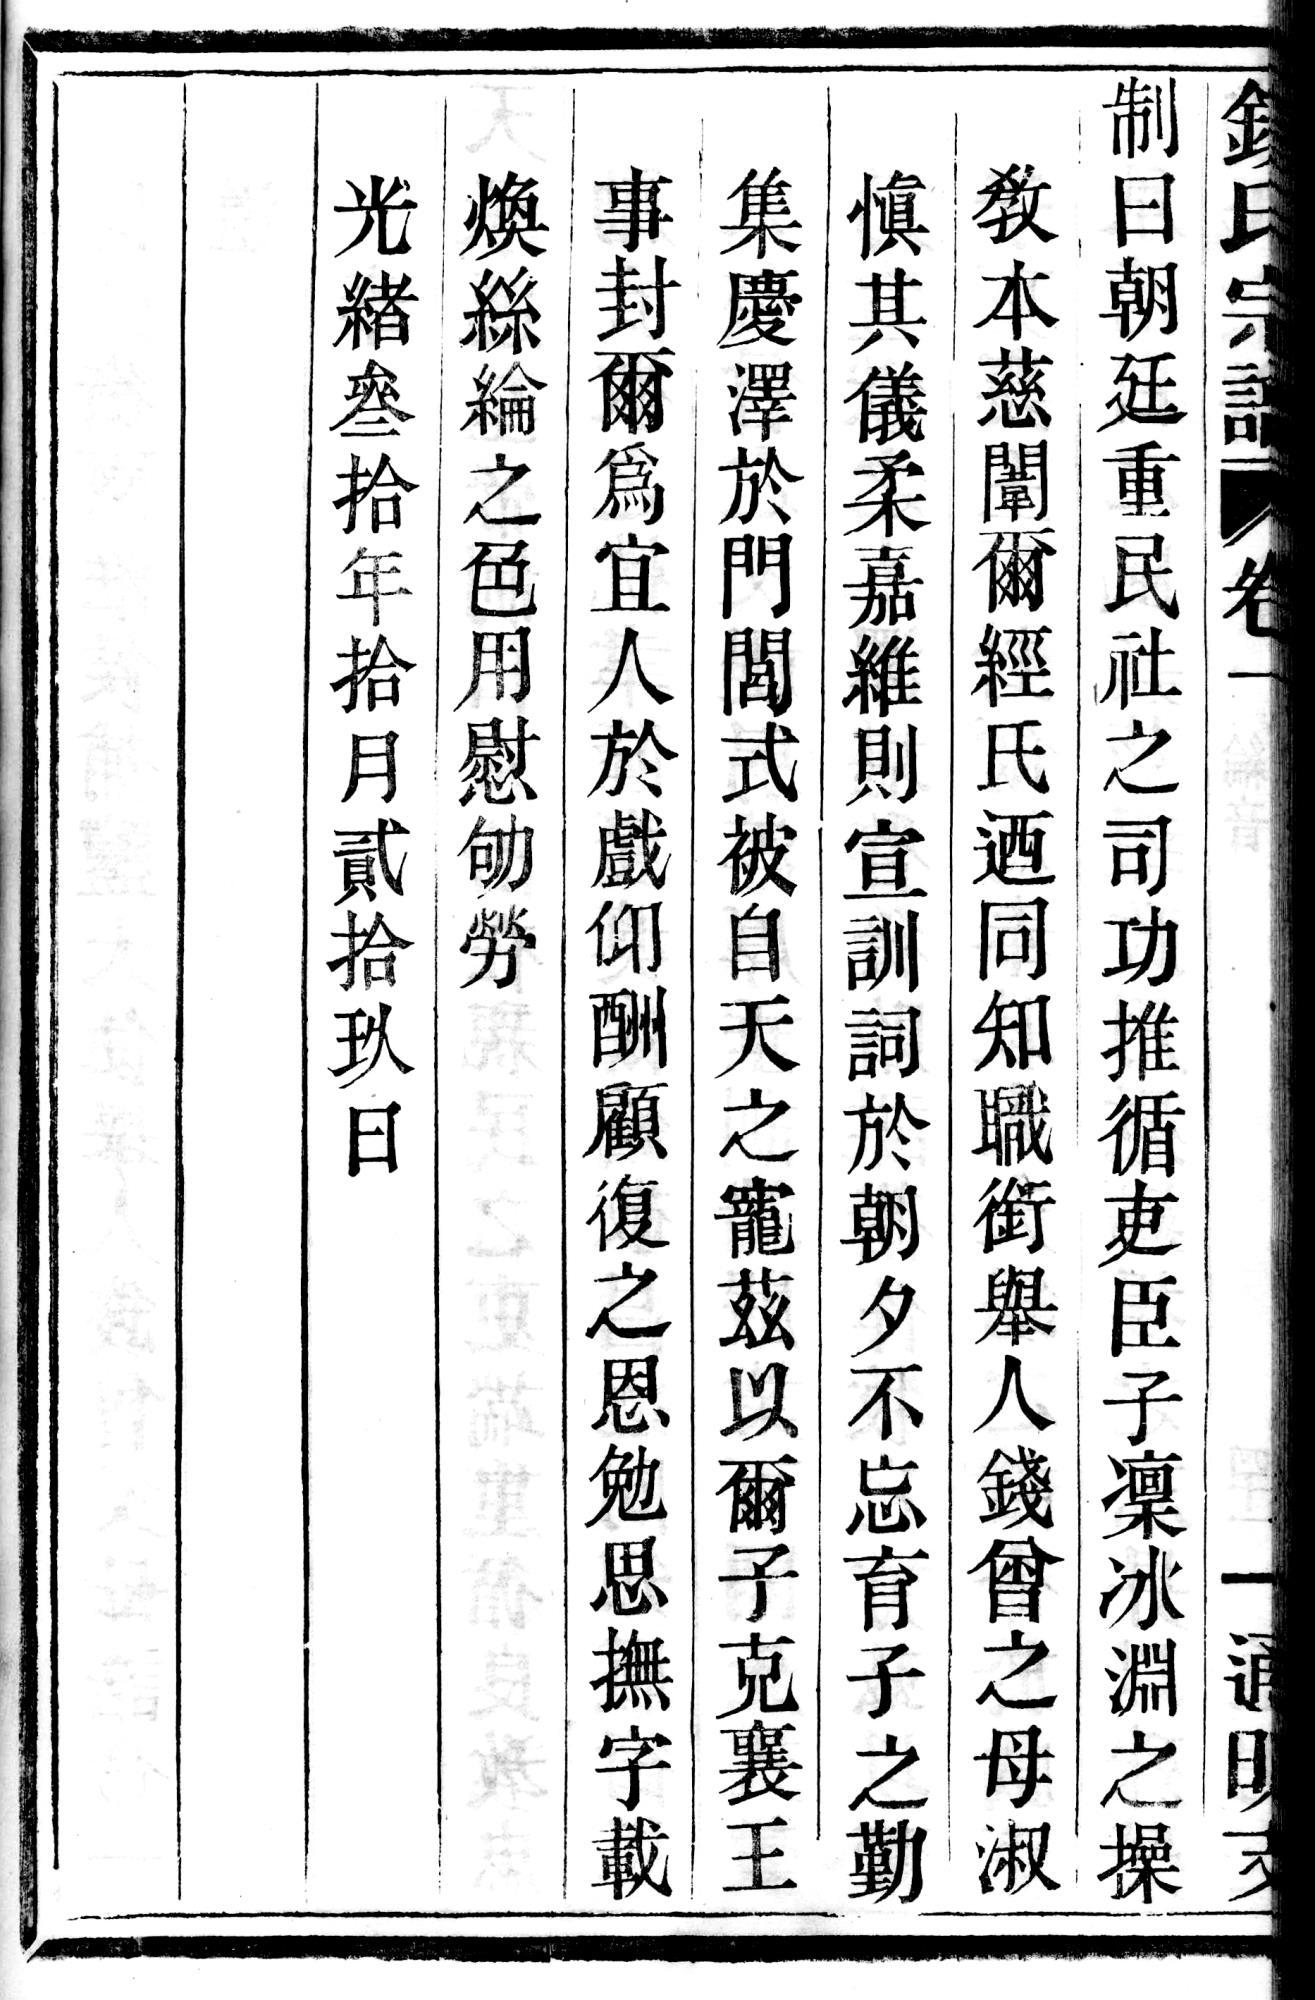 錢氏宗譜 卷一 一 通明支
制曰朝廷重民社之司功推循吏臣子凜冰淵之操
教本慈闈爾經氏迺同知職銜舉人錢曾之母淑
慎其儀柔嘉維則宣訓詞於朝夕不忘育子之勤
集慶澤於門閭式被自天之寵茲以爾子克襄王
事封爾爲宜人於戲仰酬顧復之恩勉思撫字載
煥絲綸之色用慰劬勞
光緒叄拾年拾月貳拾玖日